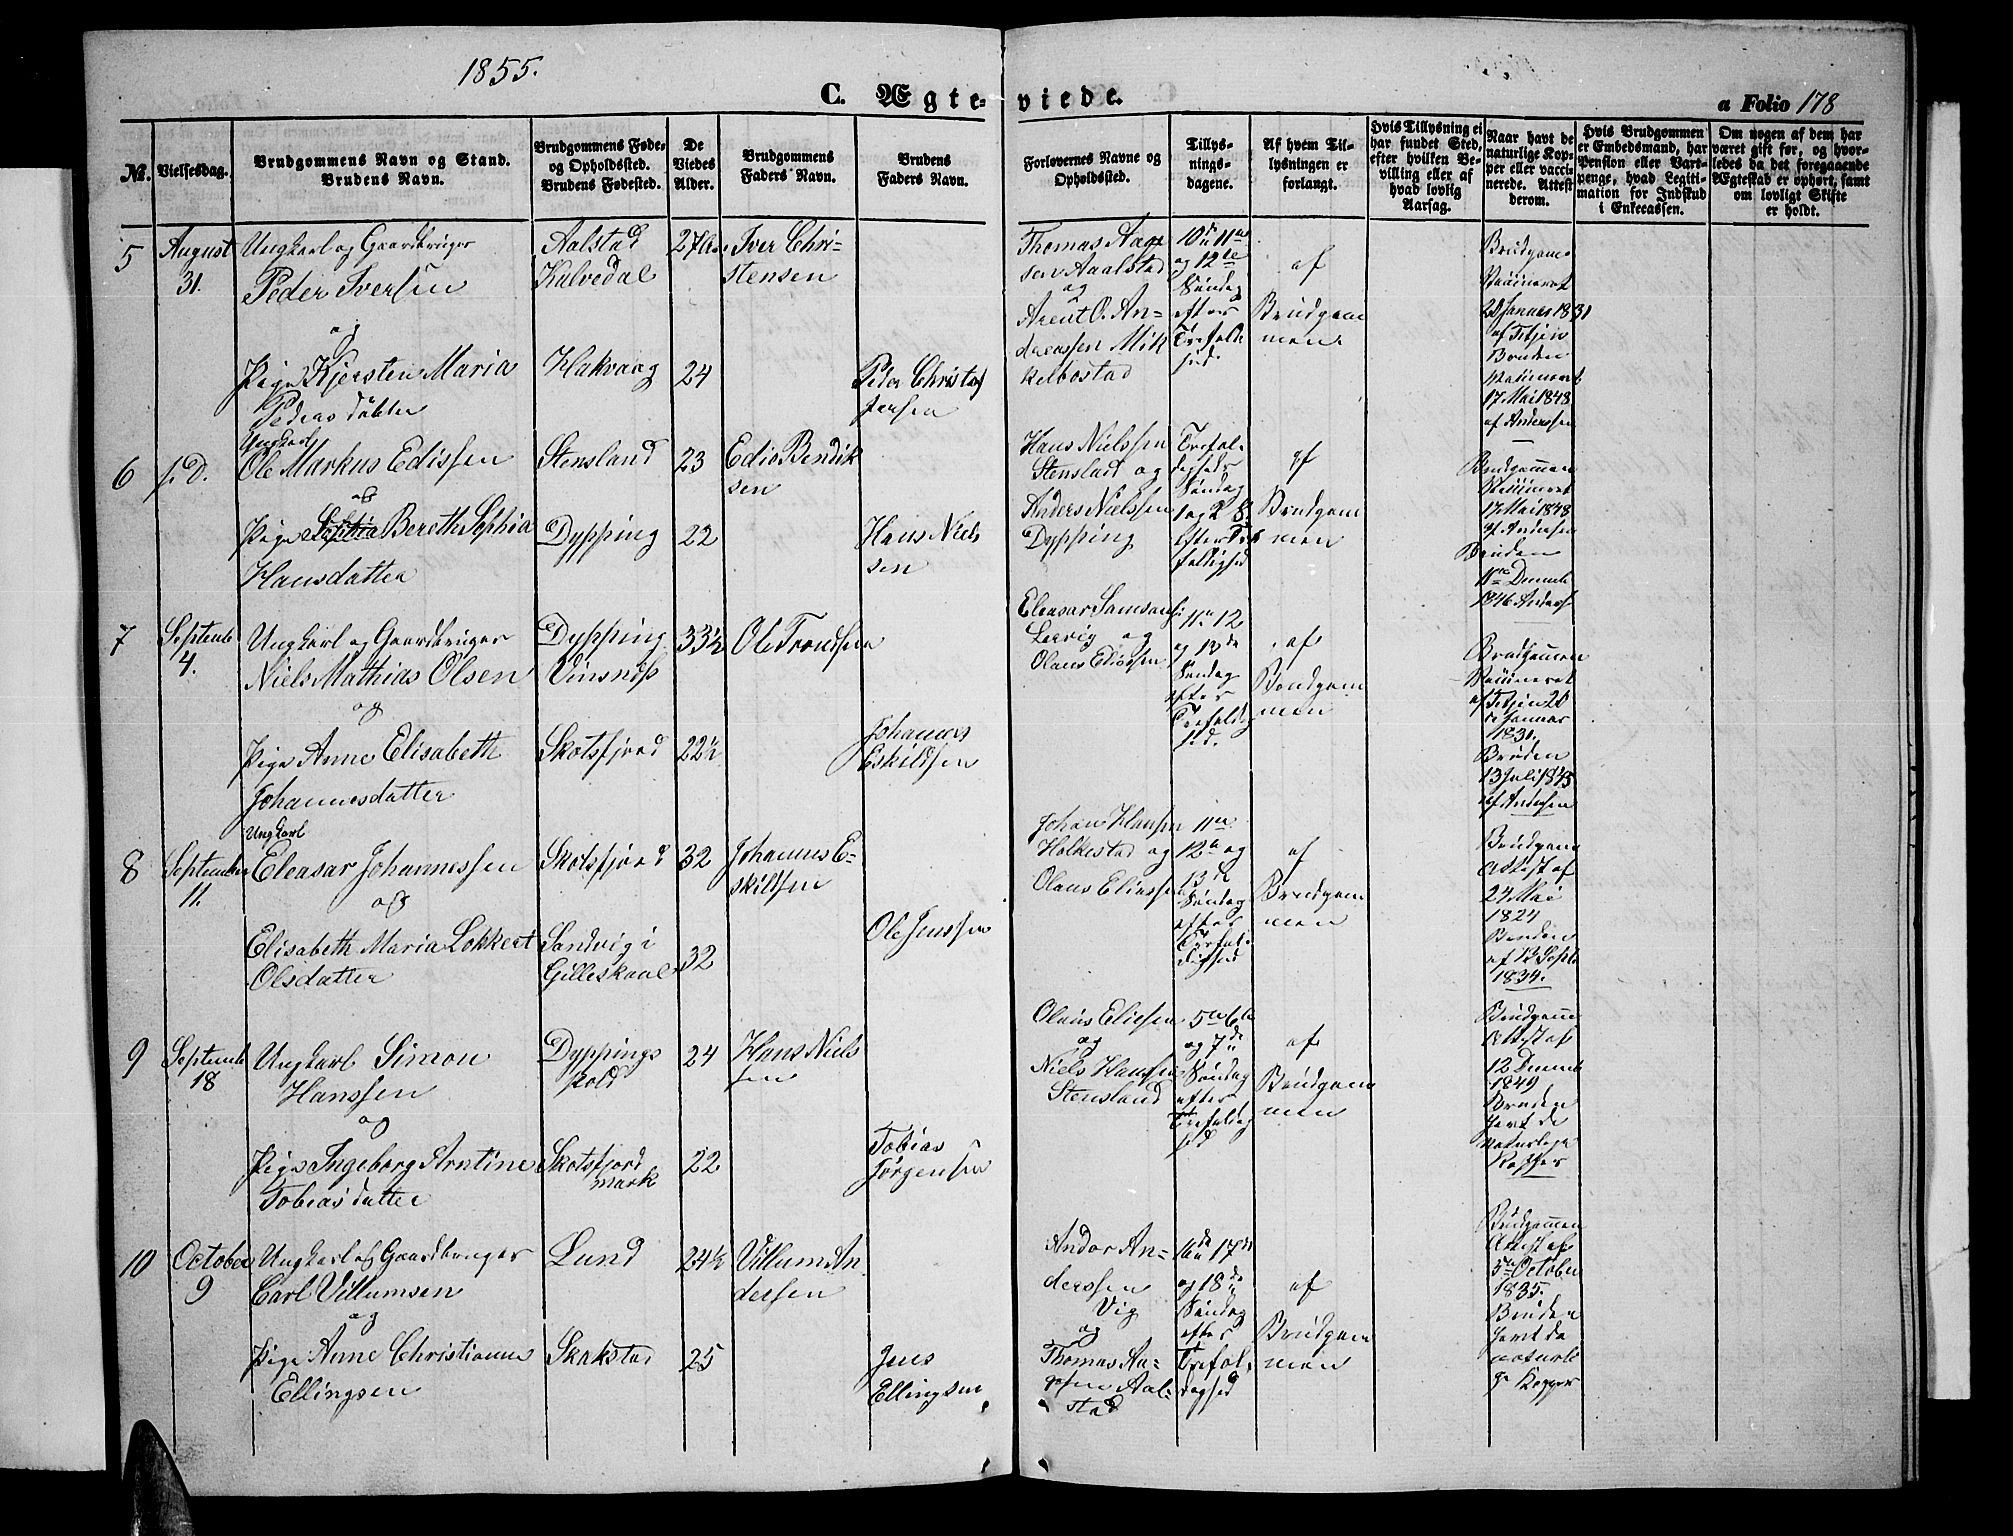 1855.
C. Ægte-
viede.
a Folio 178
№.
Vielsesdag.
Brudgommens Navn og Stand.
Brudens Navn.
Brudgommens Føde-
og Opholdssted.
Brudens Fødested.
De
Viedes
Alder.
Brudgommens
Faders Navn.
Brudens
Faders Navn.
Forlovernes Navne og
Opholdssted.
Tillys-
nings-
dagene.
Af hvem Til-
lysningen er
forlangt.
Hvis Tillysning ei
har fundet Sted,
efter hvilken Be-
villing eller af
hvad lovlig
Aarsag.
Naar havt de
naturlige Kop-
per eller vacci-
nerede. Attest
derom.
Hvis Brudgommen
er Embedsmand, har
Pension eller Vart-
penge, hvad Legiti-
mation for Indskud
i Enkecassen.
Om nogen af dem har
været gift før, og hvor-
ledes da det foregaaende
Ægteskab er ophørt, samt
om lovligt Skifte
er holdt.
5
August
31.
Ungkarl og Gaardbruger
Peder Iversen
og
Pige Kjersten Maria
Peders datter
Aalstad
Kalvedal
Hakvaag
27
24
Iver Chri-
stensen
Peder Christof
fersen
Thomas Aage
sen Aalstad
og
Arent O. An-
dreassen Mik
kelbostad
10de 11te
og 12te
Søndag
efter
Trefoldig
hed
af
Brudgom
men
Brudgom
Vaccineret
20 Januar 1831
af Tetjen
Bruden
Vaccineret
17 Mai 1848
af Anderssen
6
s. D.
Ungkarl
Ole Markus Edissen
og
Pige Sophia Bereth Sophia
Hansdatter
Stensland
Dypping
23
22
Edis Bendik
sen
Hans Niels
sen
Hans Nielssen
Stenslad og
Anders Nielssen
Dypping
Trefol-
digheds
Søndag
1 og 2 S.
efter Tre
foldighed
af
Brudgom
men
Brudgommen
Vaccineret
17 Mai 1848
af Andersen
Bruden
11te Decemb
1846 Anders
7
Septemb
4.
Ungkarl og Gaardbruger
Niels Mathias Olsen
og
Pige Anne Elisabeth
Johannesdatter
Dypping
Vinsnæs
Skotsfjord
33½
22½
Ole Trondsen
Johannes
Eskildsen
Eleasar Samsons
Leervig og
Olaus Eliessen
11te 12
og 13de
Søndag
efter
Trefoldig
hed.
af
Brudgom
men
Brudgommen
Vaccineret
af Tetjen 20
Januar
1831.
Bruden
13 Juli 1843
af Andersen
8
September
11.
Ungkarl
Eleasar Johannessen
og
Elisabeth Maria Lokkert
Olsdatter
Skotsfjord
Sandvig i
Gilleskaal
32
32
Johannes E-
skildsen
Ole Jenssen
Johan Hansen
Holkestad og
Olaus Eliessen
11te
12te og
13de
Søndag
efter
Trefol-
dighed
af
Brudgom
men
Brudgom
Attest af
24 Mai
1824
Bruden
af 12 Septb
1834.
9
Septemb
18
Ungkarl Simon
Hanssen
og
Pige Ingeborg Arntine
Tobias datter
Dyppings
pold
Skotsfjord
mark
24
22
Hans Niels
sen
Tobias
Jørgensen
Olaus Eliesen
og
Niels Hanssen
Stensland
5te 6te
og 7de
Søndag
efter
Trefoldig
hed
af
Brudgom
men
Brudgom
Attest af
12 Decemb
1849
Bruden
havt de
naturlige
Kopper
10
October
9
Ungkarl og Gaardbruger
Carl Villumsen
og
Pige Anne Christianna
Ellingsen
Lund
Skakstad
24½
25
Villum An
dersen
Jens
Ellingsen
Andor An-
derssen
Vig
og
Thomas Aa-
gesen Aal-
stad
16de 17de
og 18de
Søndag
efter
Trefol-
dighed
af
Brudgom
men
Brudgommen
Attest af
5te October
1835.
Bruden
havt de
naturli
ge Kopper